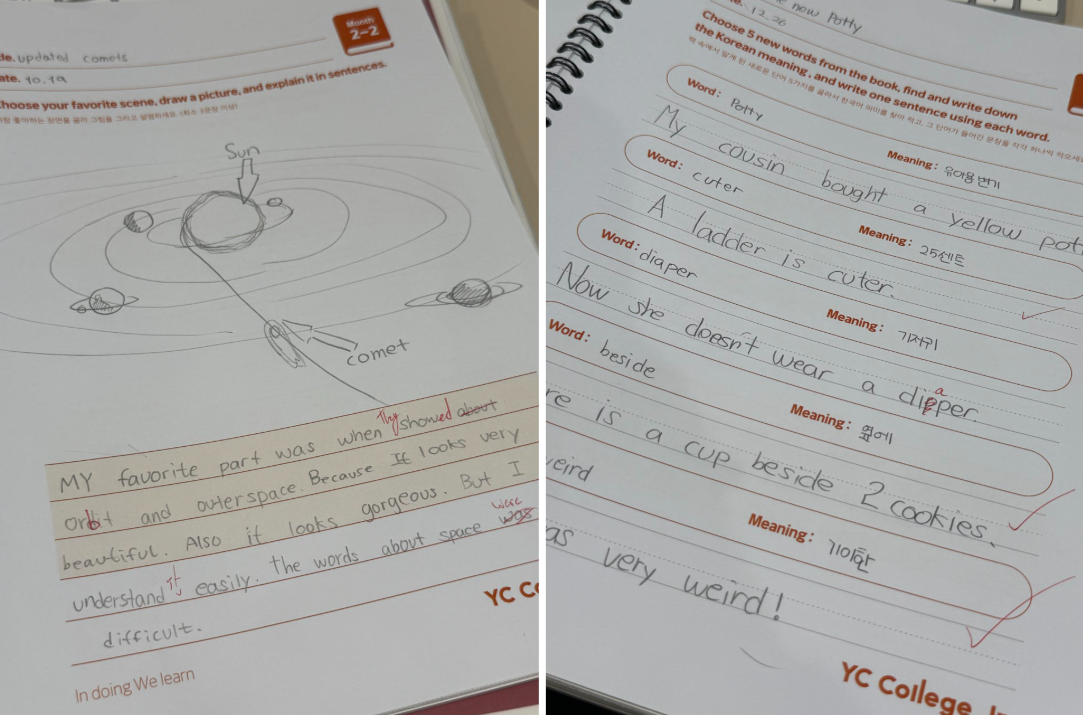 Month
2-2
de. updated comets
ate. 10.19
hoose your favorite scene, draw a picture, and explain it in sentences.
Sun
comet
MY favorite part was when They showed about
orbit and outerspace. Because It looks very
beautiful. Also it looks gorgeous. But I
understand it easily. the words about space was were
difficult.
YC Co
In doing We learn
now Potty
te. 12.26
Choose 5 new words from the book, find and write down
the Korean meaning, and write one sentence using each word.
Word: Potty
Meaning: 유아용변기
My cousin bought a yellow pot
Word: cuter
Meaning: 25센트
A ladder is cuter.
Word: diaper
Meaning: 기저귀
Now she doesn't wear a diaper.
Word: beside
Meaning: 옆에
re is a cup beside 2 cookies.
weird
Meaning: 기이한
as very weird!
YC College